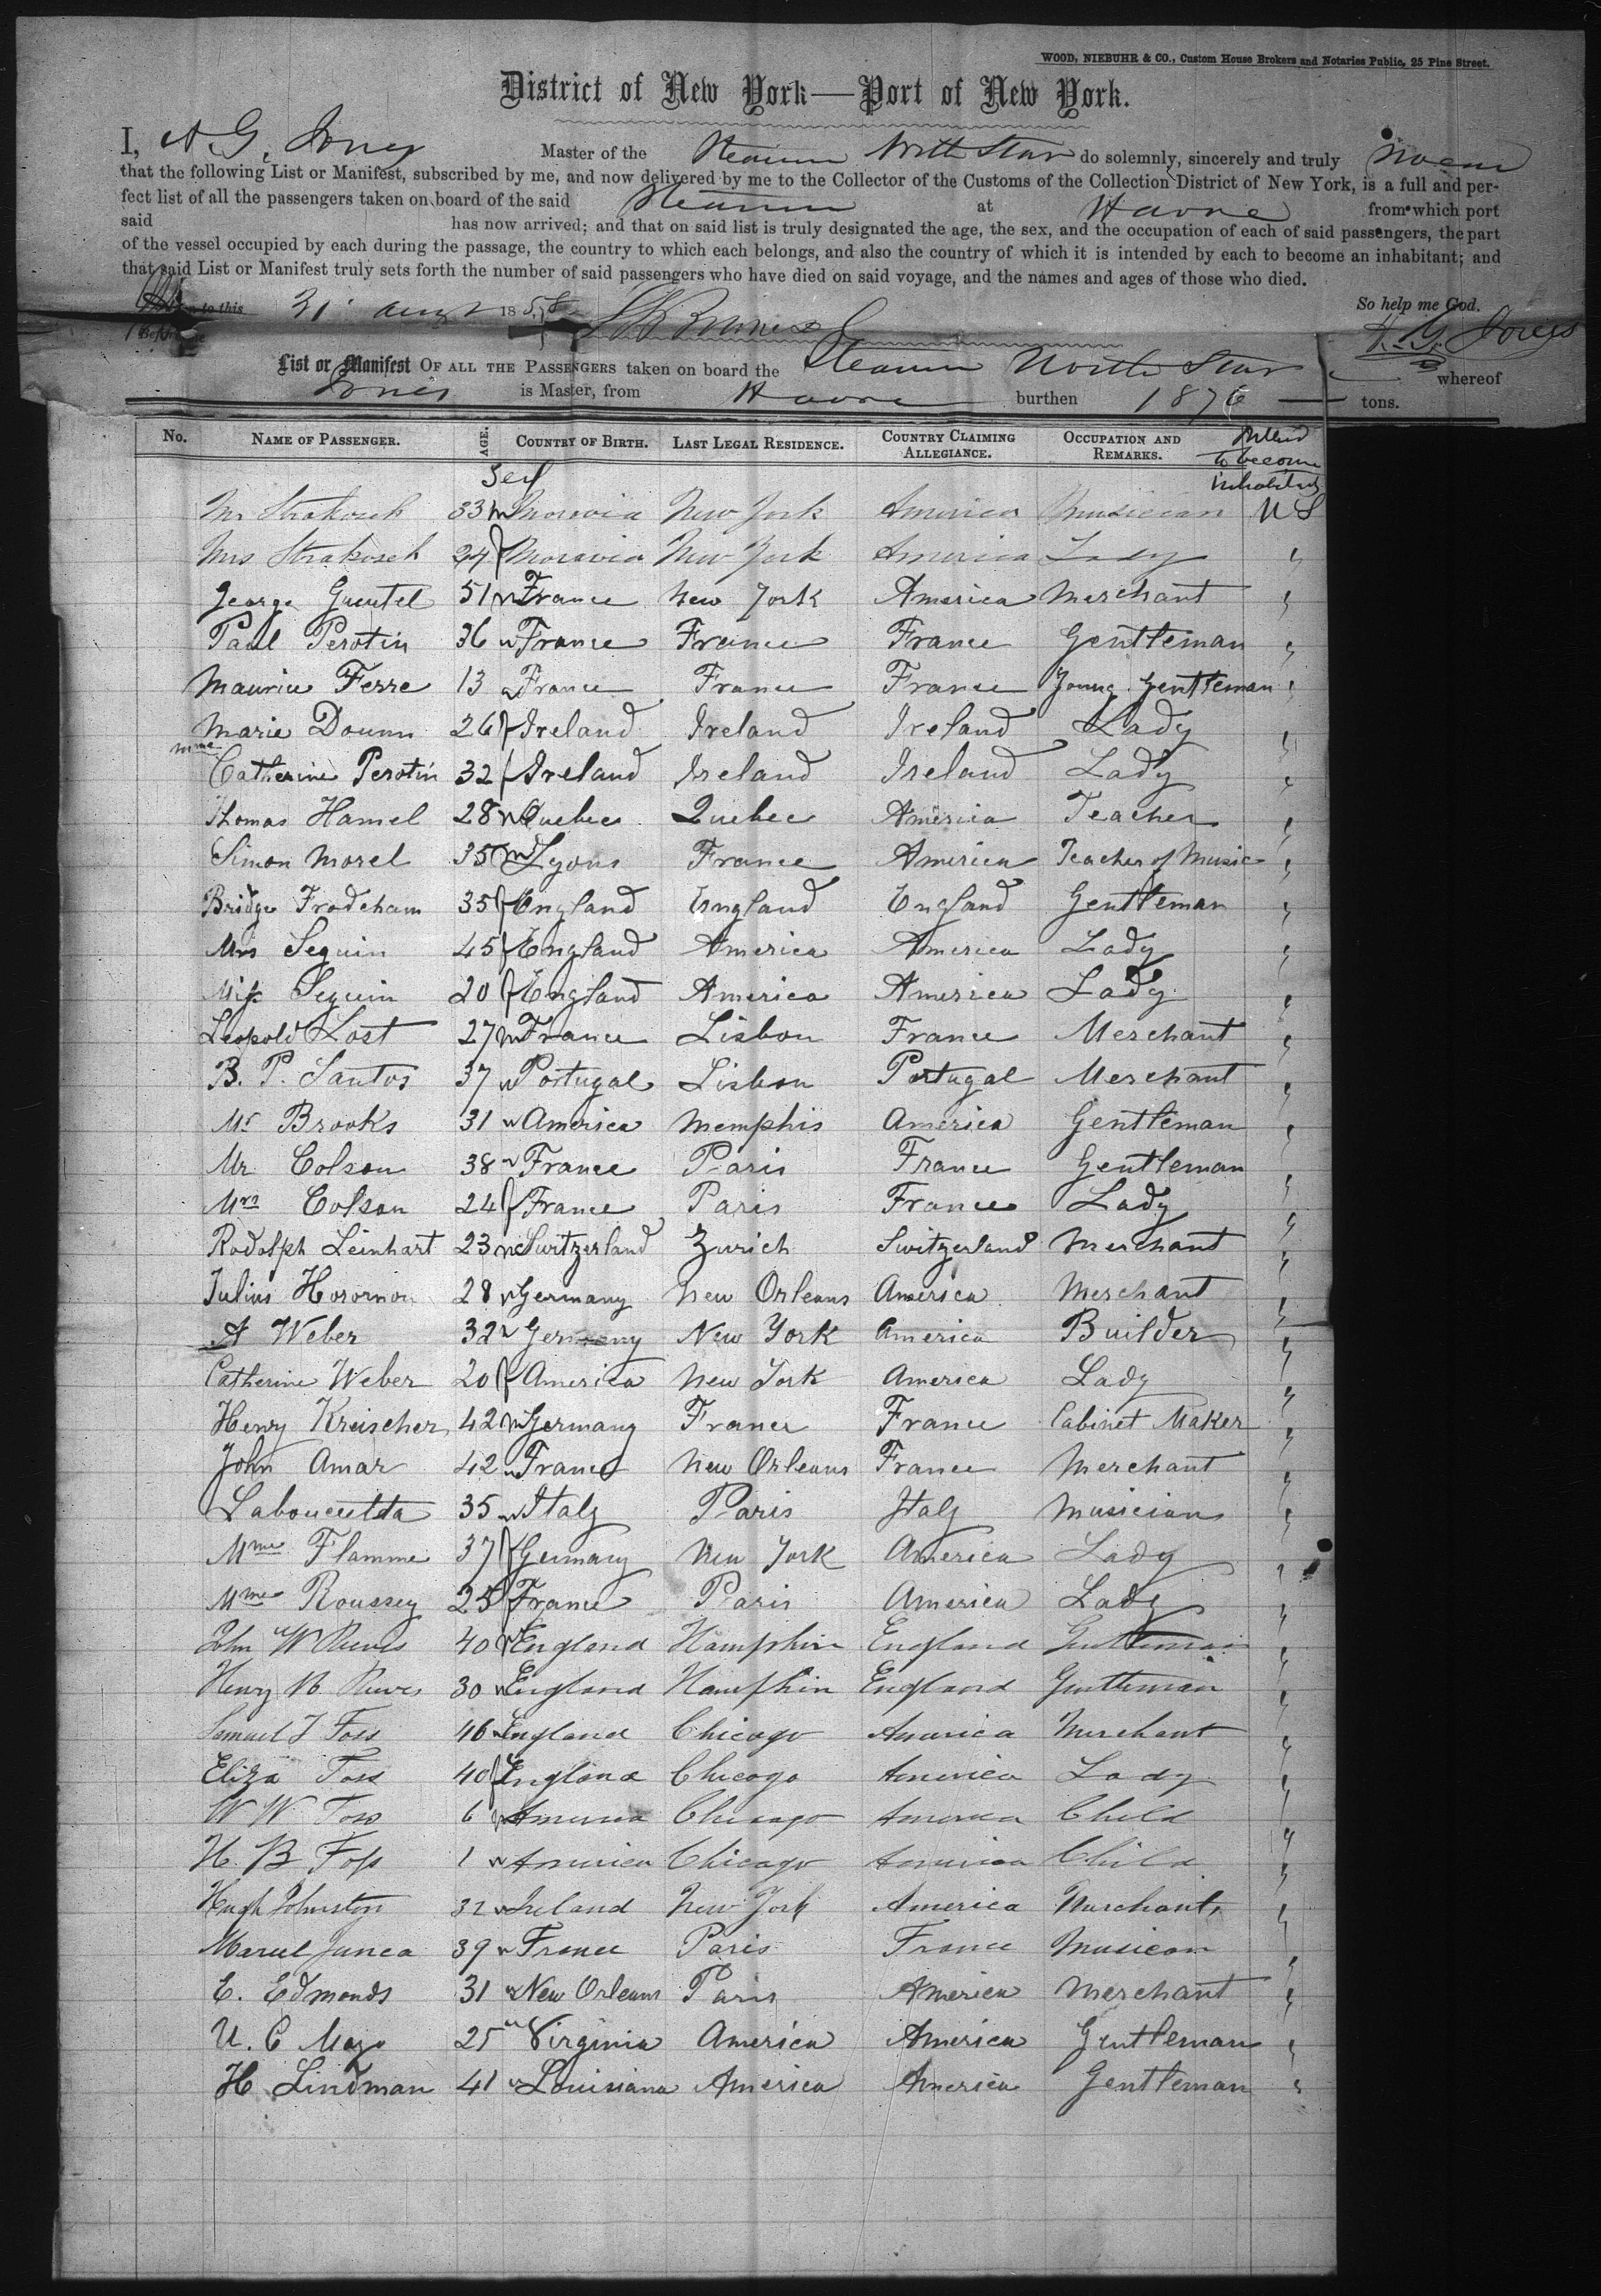 WOOD, NIEBUHR & CO., Custom House Brokers and Notaries Public, 25 Pine Street.
District of New York—Port of New York.
I, A. G. Jones Master of the Steamer North Star do solemnly, sincerely and truly swear
that the following List or Manifest, subscribed by me, and now delivered by me to the Collector of the Customs of the Collection District of New York, is a full and per-
fect list of all the passengers taken on board of the said Steamer at Havre from which port
said has now arrived; and that on said list is truly designated the age, the sex, and the occupation of each of said passengers, the part
of the vessel occupied by each during the passage, the country to which each belongs, and also the country of which it is intended by each to become an inhabitant; and
that said List or Manifest truly sets forth the number of said passengers who have died on said voyage, and the names and ages of those who died.
to this 31 Augt 1858 So help me God.
A. G. Jones
List or Manifest OF ALL THE PASSENGERS taken on board the Steamer North Star whereof
Jones is Master, from Havre burthen 1876 tons.
No. NAME OF PASSENGER. AGE. COUNTRY OF BIRTH. LAST LEGAL RESIDENCE. COUNTRY CLAIMING ALLEGIANCE. OCCUPATION AND REMARKS. Intend to become inhabitants
Sex
Mr Strakosch 33 m Moravia New York America Musician U S
Mrs Strakosch 24 f Moravia New York America Lady "
George Gueutel 51 m France New York America Merchant "
Paul Perotin 36 m France France France Gentleman "
Maurice Ferre 13 m France France France Young Gentleman "
Marie Doumn 26 f Ireland Ireland Ireland Lady "
Mme Catherine Perotin 32 f Ireland Ireland Ireland Lady "
Thomas Hamel 28 m Quebec Quebec America Teacher "
Simon Morel 35 m Lyons France America Teacher of Music "
Bridge Frodsham 35 f England England England Gentleman "
Mrs Seguin 45 f England America America Lady "
Miss Seguin 20 f England America America Lady "
Leopold Lost 27 m France Lisbon France Merchant "
B. P. Santos 37 m Portugal Lisbon Portugal Merchant "
Mr Brooks 31 m America Memphis America Gentleman "
Mr Colson 38 m France Paris France Gentleman "
Mrs Colson 24 f France Paris France Lady "
Rodolph Leinhart 23 m Switzerland Zurich Switzerland Merchant "
Julius 28 m Germany New Orleans America Merchant "
A Weber 32 m Germany New York America Builder "
Catherine Weber 20 f America New York America Lady "
Henry Kreischer 42 m Germany France France Cabinet Maker "
John Amar 42 m France New Orleans France Merchant "
Laboucetta 35 m Italy Paris Italy Musician "
Mme Flamme 37 f Germany New York America Lady "
Mme Roussey 25 f France Paris America Lady "
John W Reeves 40 m England Hampshire England Gentleman "
Henry W Reeves 30 m England Hampshire England Gentleman "
Samuel T Foss 46 m England Chicago America Merchant "
Eliza Foss 40 f England Chicago America Lady "
W W Foss 6 m America Chicago America Child "
H. B Foss 1 m America Chicago America Child "
Hugh Johnston 32 m Ireland New York America Merchant "
Marcel Junca 39 m France Paris France Musican "
E. Edmonds 31 m New Orleans Paris America Merchant "
U. C Mayo 25 m Virginia America America Gentleman "
H Lindman 41 m Louisiana America America Gentleman "